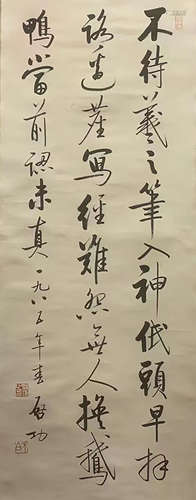 不待羲之筆入神低頭早拜
路邊塵寫經難怨無人換鵝
鴨當前認未真一九八五年春啟功